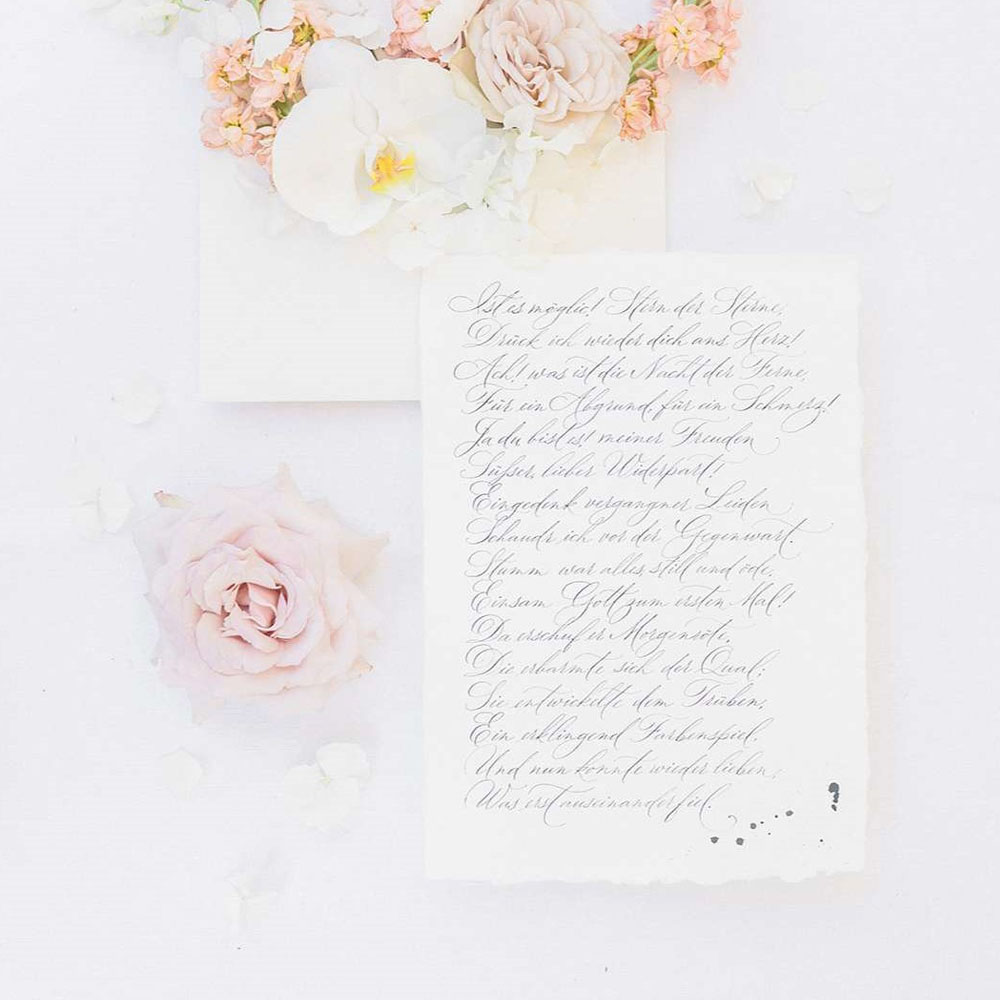 Ist es möglic! Stern der Sterne,
Drück ich wieder dich ans Herz!
Ach! was ist die Nacht der Ferne,
Für ein Abgrund, für ein Schmerz!
Ja du bist es! meiner Freuden
Süßer, lieber Widerpart!
Eingedenk vergangner Leiden
Schaudr ich vor der Gegenwart.
Stumm war alles, still und öde,
Einsam Gott zum ersten Mal!
Da erschuf er Morgenröte,
Die erbarmte sich der Qual;
Sie entwickelte dem Trüben,
Ein erklingend Farbenspiel.
Und nun konnte wieder lieben,
Was erst auseinanderfiel.